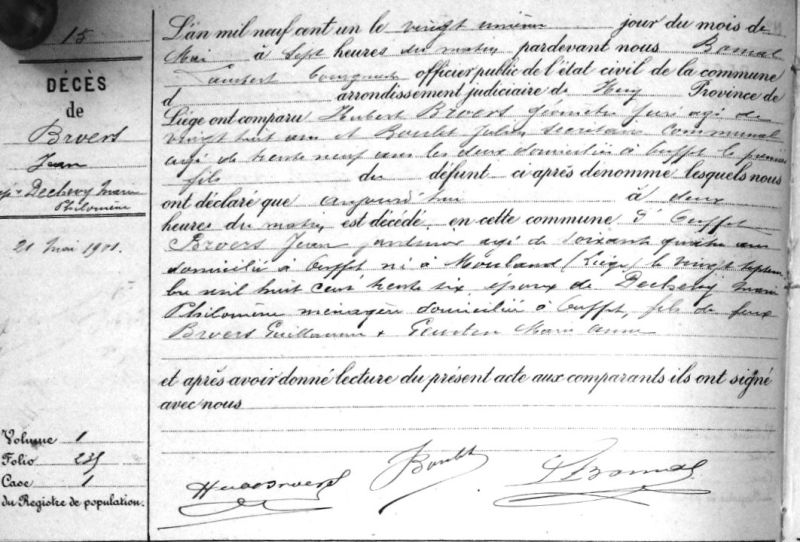 15
DÉCÈS
de
Brvers
Jean
épx Dechevy Marie
Philomène
21 Mai 1901.
Volume 1
Folio 235
Case 1
du Registre de population.
L'an mil neuf cent un le vingt unième jour du mois de
Mai à sept heures du matin pardevant nous Bonnal
Lambert bourgmestre officier public de l'état civil de la commune
d arrondissement judiciaire de Huy Province de
Liége ont comparu Hubert Brvers géomètre juré agé de
vingt huit ans et Boulet Jules secrétaire communal
agé de trente neuf ans les deux domiciliés à Ouffet le premier
fils du défunt ci après dénommé lesquels nous
ont déclaré que aujourd'hui à deux
heures du matin, est décédé, en cette commune d'Ouffet
Brvers Jean jardinier agé de soixante quatre ans
domicilié à Ouffet né à Mouland (Liége) le vingt septem
bre mil huit cent trente six époux de Dechevy Marie
Philomène ménagère domiciliée à Ouffet, fils de feux
Brvers Guillaume & Marie Anne
et après avoir donné lecture du présent acte aux comparants ils ont signé
avec nous
Hub Brvers Boulet L Bonnal